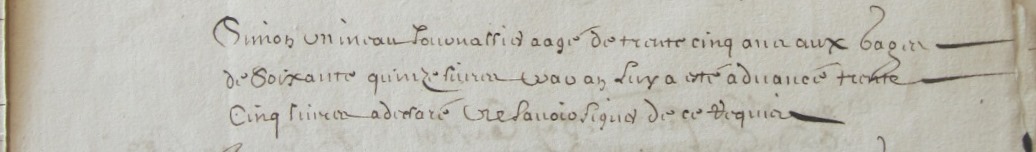 Simon Vnineau Journallier aagé de trente cinq ans aux gages
de Soixante quinze liures Et luy a esté aduancé trente
Cinq liures a declaré ne Sauoir Signer de ce Requis